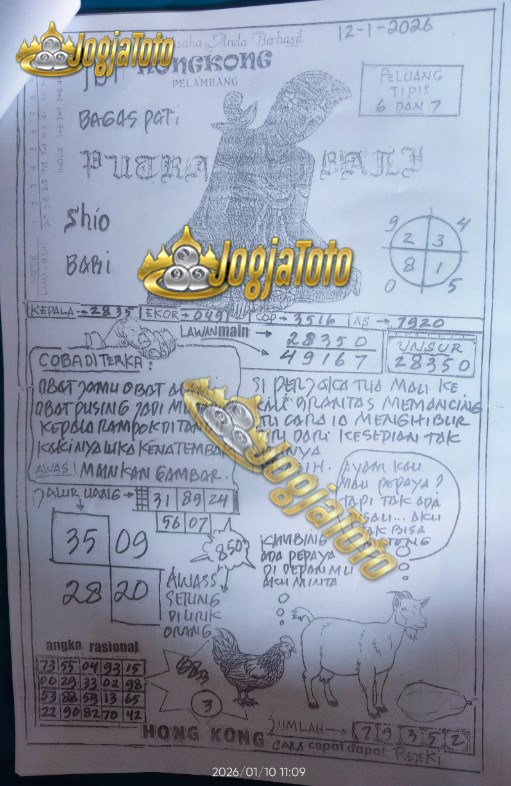 JogjaToto
Anda Berhasil
12-1-2026
HONGKONG
PELAMBANG
PELUANG
TIPIS
6 DAN 7
BAGAS PATI
PUTRA BALI
Shio
BABI
9 4
2 3
8 1
0 5
JogjaToto
KEPALA → 2835 EKOR → 0491 COP → 3516 AS → 7920
LAWAN main → 28350
49167
UNSUR
28350
COBA DITERKA:
OBAT JAMU OBAT
OBAT PUSING JADI
KEPALA RAMPOK DI
KAKINYA LUKA KENA TEMBAK
AWAS! MAINKAN GAMBAR.
SI PERJAKA TUA MAU KE
KALI BRANTAS MEMANCING
CARA IO MENGHIBUR
DARI KESEPIAN TAK
JogjaToto
AYAM KAU
MAU PEPAYA?
TAPI TAK ADA
AKU
TAK BISA
JALUR UANG → 31 89 24
56 07
35 09
28 20
850
KAMBING
ADA PEPAYA
DI DEPANMU
AKU MINTA
AWASS
SETUNG
DILIRIK
ORANG
angka rasional
73 55 04 93 15
00 29 33 02 98
53 88 59 13 65
22 90 82 70 42
3
JUMLAH → 7 9 3 5 2
HONG KONG
CARA cepat dapat REJEKI
2026/01/10 11:09